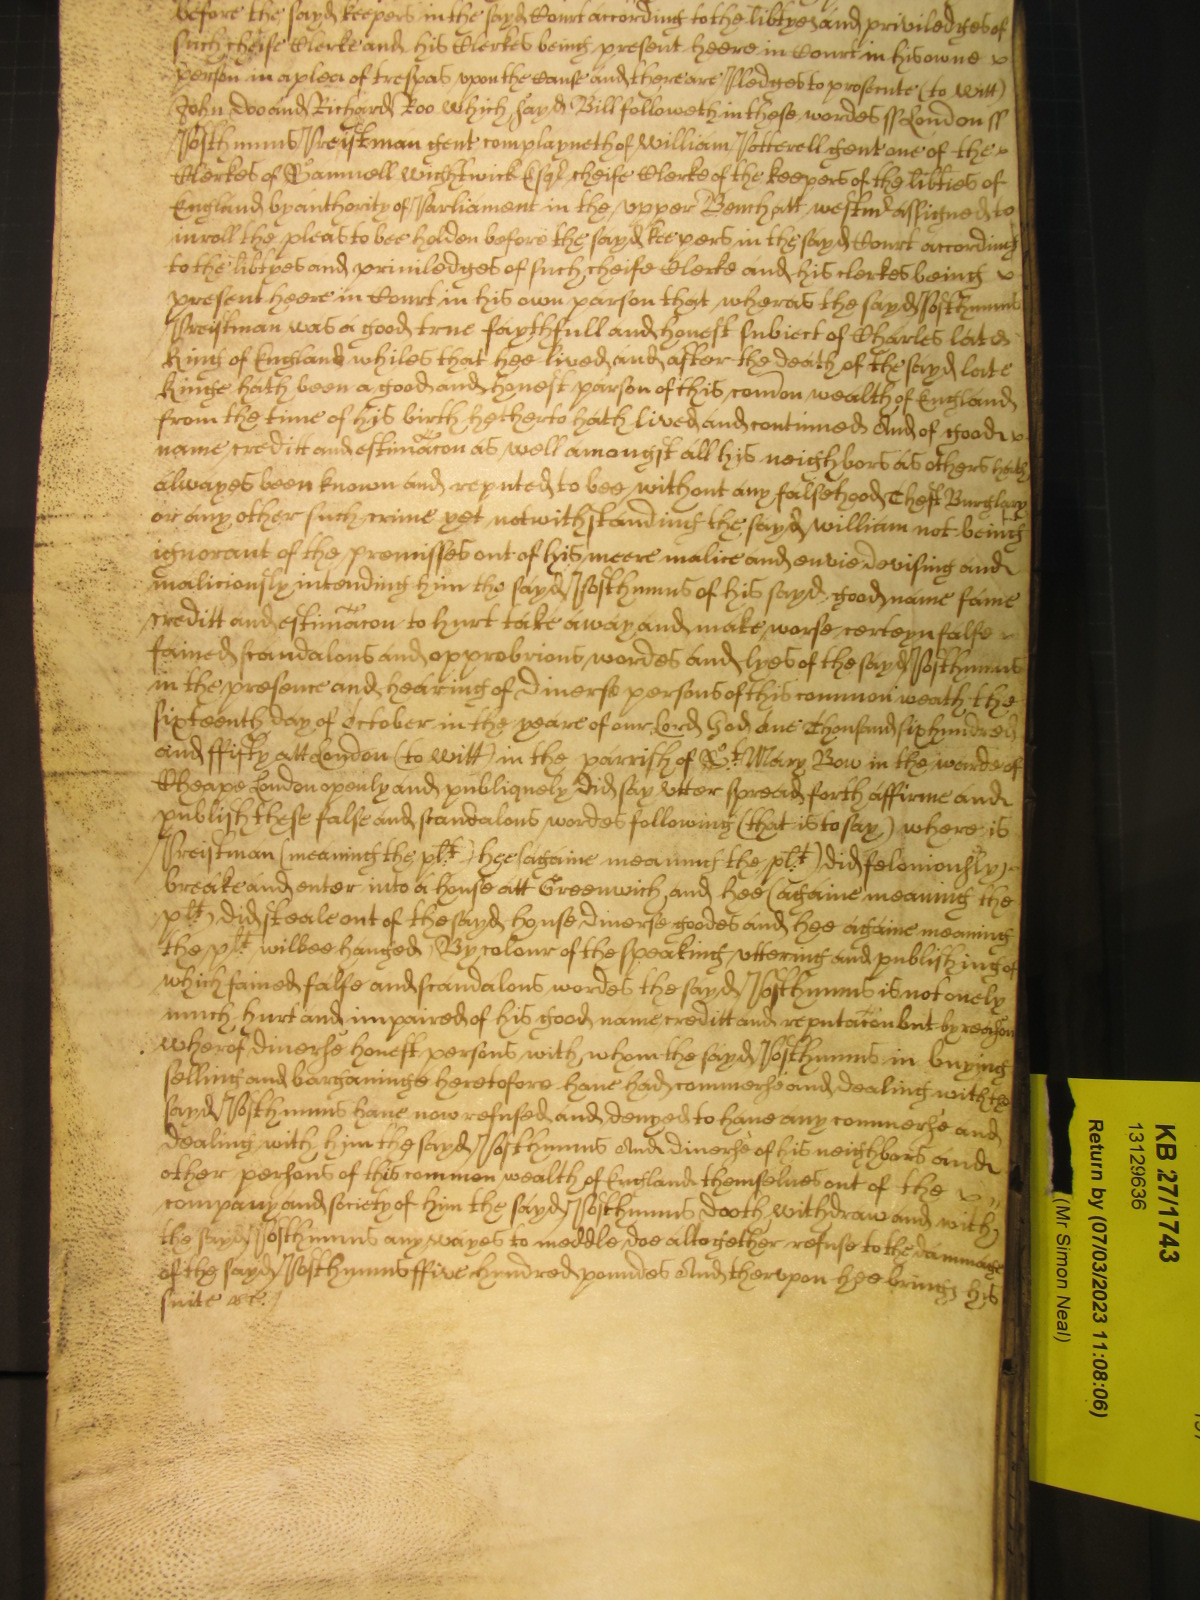 before the sayd keepers in the sayd Court according to the libtyes and priviledges of
such cheife Clerke and his Clerkes being present heere in Court in his owne
person in a plea of trespas upon the Cause and there are Pledges to prosecute (to witt)
John Doo and Richard Roo which sayd Bill followeth in these wordes ss London ss
Posthumus Preistman gent complayneth of William Potterell gent one of the
Clerkes of Samuell Wightwick Esqr cheife Clerke of the keepers of the libties of
England by authority of Parliament in the upper Bench att westmr assigned to
inroll the pleas to bee holden before the sayd keepers in the sayd Court according
to the libtyes and priviledges of such cheife Clerke and his clerkes being
present heere in Court in his own parson that wheras the sayd Posthumus
Preistman was a good true faythfull and honest subiect of Charles late
King of England whiles that hee lived and after the death of the sayd late
Kinge hath been a good and honest parson of this comon wealth of England
from the time of his birth hetherto hath lived and continued And of good
name creditt and estimacon as well amongst all his neighbors as others hath
alwayes been known and reputed to bee without any falsehood Theft Burglary
or any other such crime yet notwithstanding the sayd William not being
ignorant of the premisses out of his meere malice and envie devising and
maliciously intending him the sayd Posthumus of his sayd good name fame
creditt and estimacon to hurt take away and make worse certeyn false
fained scandalous and opprobrious wordes and lyes of the sayd Posthumus
in the presence and hearing of diverse persons of this common weath the
sixteenth day of October in the yeare of our Lord God one Thousand six hundred
and ffifty att London (to witt) in the parrish of St Mary Bow in the warde of
Cheape London openly and publiquely did say utter spread forth affirme and
publish these false and scandalous wordes following (that is to say) where is
Preistman (meaning the plt) hee (againe meaning the plt) did feloniously
breake and enter into a house att Greenwich and hee (againe meaning the
plt) did steale out of the sayd house diverse goodes and hee againe meaning
the plt wilbee hanged By colour of the speaking uttering and publishing of
which fained false and scandalous wordes the sayd Posthumus is not onely
much hurt and impaired of his good name creditt and reputacon but by reason
wherof diverse honest persons with whom the sayd Posthumus in buying
selling and bargaininge heretofore have had commerse and dealing with the
sayd Posthumus have now refused and denyed to have any commerse and
dealing with him the sayd Posthumus And diverse of his neighbors and
other persons of this common wealth of England themselves out of the
company and society of him the sayd Posthumus dooth withdraw and with
the sayd Posthumus any wayes to meddle doe altogether refuse to the dammage
of the sayd Posthumus ffive hundred poundes And therupon hee brings his
suite &c.
KB 27/1743
13129636
Return by (07/03/2023 11:08:06)
(Mr Simon Neal)